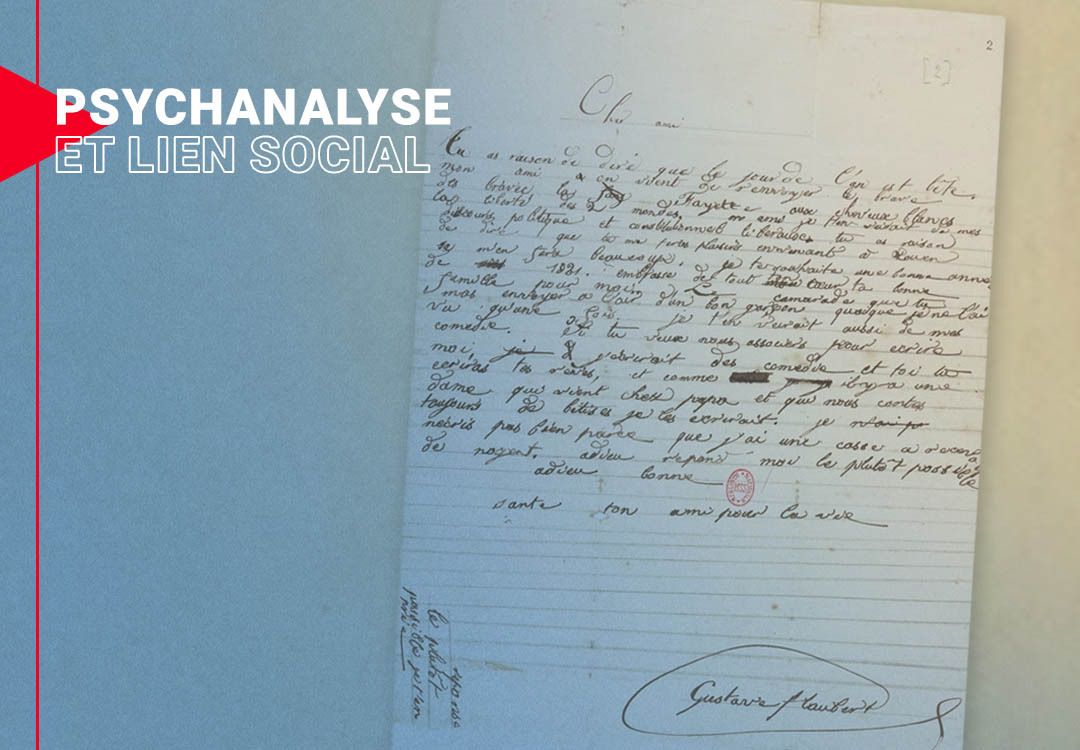 PSYCHANALYSE
ET LIEN SOCIAL
2
[2]
Cher ami
Tu as raison de dire que le jour de l'en est bête.
mon ami on vient de renvoyer le brave
des braves la Fayette aux cheveux blancs
la liberté des 2 mondes. mon ami je t'en veirait de mes
discours politique et constitionnel liberaux. tu as raison
de dire que tu me feras plaisirs en venant à Rouen
sa m'en fera beaucoup. je te souhaite une bonne année
de 1831. embrasse de tout ton cœur ta bonne
famille pour moi. Le camarade que tu
mas envoyer a l'air d'un bon garçon quoique je ne l'ai
vu qu'une fois. je t'en veirait aussi de mes
comedie. Si tu veux nous associers pour ecrire
moi, j'ecrirait des comedie et toi tu
ecriras tes rêves, et comme il y a une
dame qui vient chez papa et qui nous contes
toujours de bêtises je les ecrirait. je
n'ecris pas bien parce que j'ai une casse a recevoir
de nogent. adieu repond moi le plutôt possible
adieu bonne
santé ton ami pour la vie
reponse
le plutôt
possible je t'en
prie
Gustave flaubert